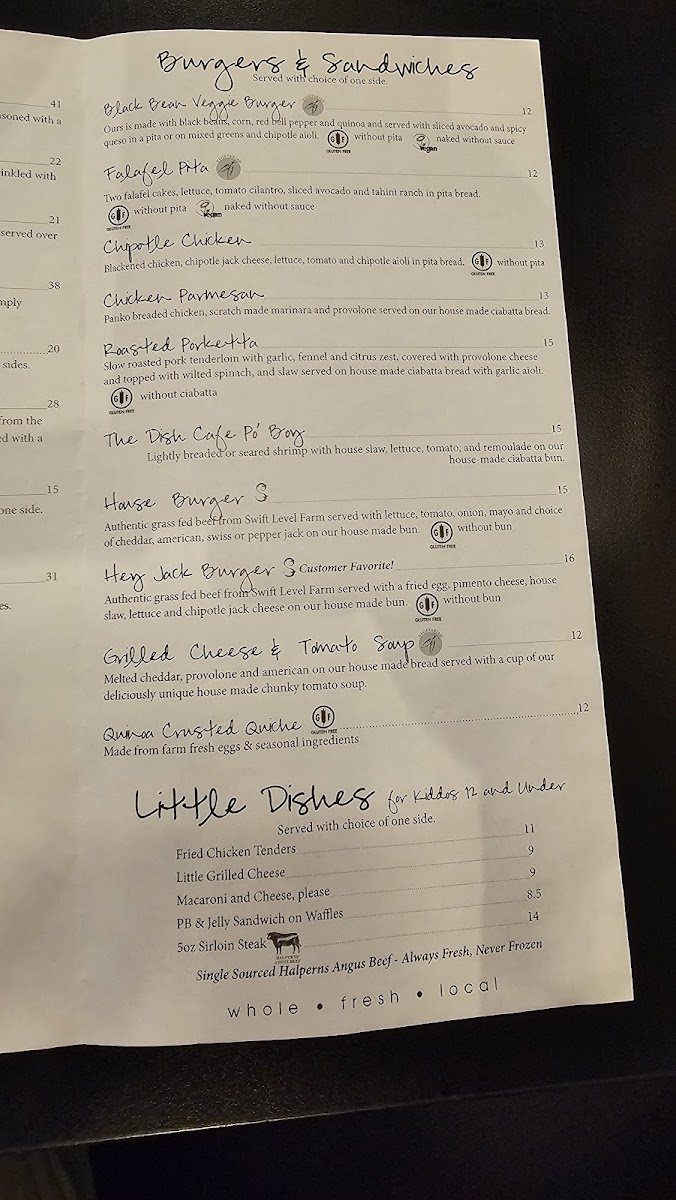 41
soned with a
22
inkled with
21
served over
38
mply
20
sides.
28
from the
ed with a
15
one side.
31
es.
Burgers & Sandwiches
Served with choice of one side.
Black Bean Veggie Burger 12
Ours is made with black beans, corn, red bell pepper and quinoa and served with sliced avocado and spicy
queso in a pita or on mixed greens and chipotle aioli. GF GLUTEN FREE without pita vegan naked without sauce
Falafel Pita 12
Two falafel cakes, lettuce, tomato cilantro, sliced avocado and tahini ranch in pita bread.
GF GLUTEN FREE without pita vegan naked without sauce
Chipotle Chicken 13
Blackened chicken, chipotle jack cheese, lettuce, tomato and chipotle aioli in pita bread. GF GLUTEN FREE without pita
Chicken Parmesan 13
Panko breaded chicken, scratch made marinara and provolone served on our house made ciabatta bread.
Roasted Porketta 15
Slow roasted pork tenderloin with garlic, fennel and citrus zest, covered with provolone cheese
and topped with wilted spinach, and slaw served on house made ciabatta bread with garlic aioli.
GF GLUTEN FREE without ciabatta
The Dish Cafe Po' Boy 15
Lightly breaded or seared shrimp with house slaw, lettuce, tomato, and remoulade on our
house-made ciabatta bun.
House Burger 15
Authentic grass fed beef from Swift Level Farm served with lettuce, tomato, onion, mayo and choice
of cheddar, american, swiss or pepper jack on our house made bun. GF GLUTEN FREE without bun
Hey Jack Burger Customer Favorite! 16
Authentic grass fed beef from Swift Level Farm served with a fried egg, pimento cheese, house
slaw, lettuce and chipotle jack cheese on our house made bun. GF GLUTEN FREE without bun
Grilled Cheese & Tomato Soup 12
Melted cheddar, provolone and american on our house made bread served with a cup of our
deliciously unique house made chunky tomato soup.
Quinoa Crusted Quiche GF GLUTEN FREE 12
Made from farm fresh eggs & seasonal ingredients
Little Dishes for Kiddos 12 and Under
Served with choice of one side.
Fried Chicken Tenders 11
Little Grilled Cheese 9
Macaroni and Cheese, please 9
PB & Jelly Sandwich on Waffles 8.5
5oz Sirloin Steak HALPERNS ANGUS BEEF 14
Single Sourced Halperns Angus Beef - Always Fresh, Never Frozen
whole • fresh • local